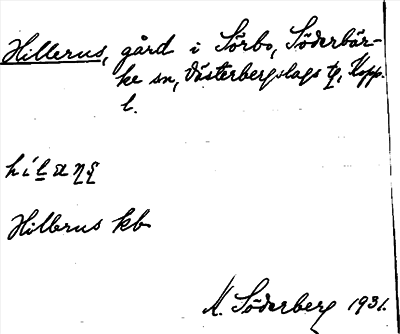 Hillerus, gård i Sörbo, Söderbär-
ke sn, Västerbergslags tg, Kopp.
l.
Hillerus kb
M. Söderberg 1931.